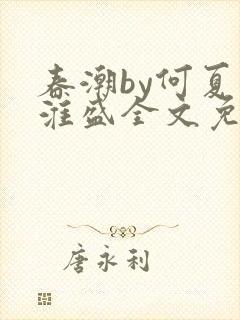 春潮by何夏
淮盛全文免
唐永利